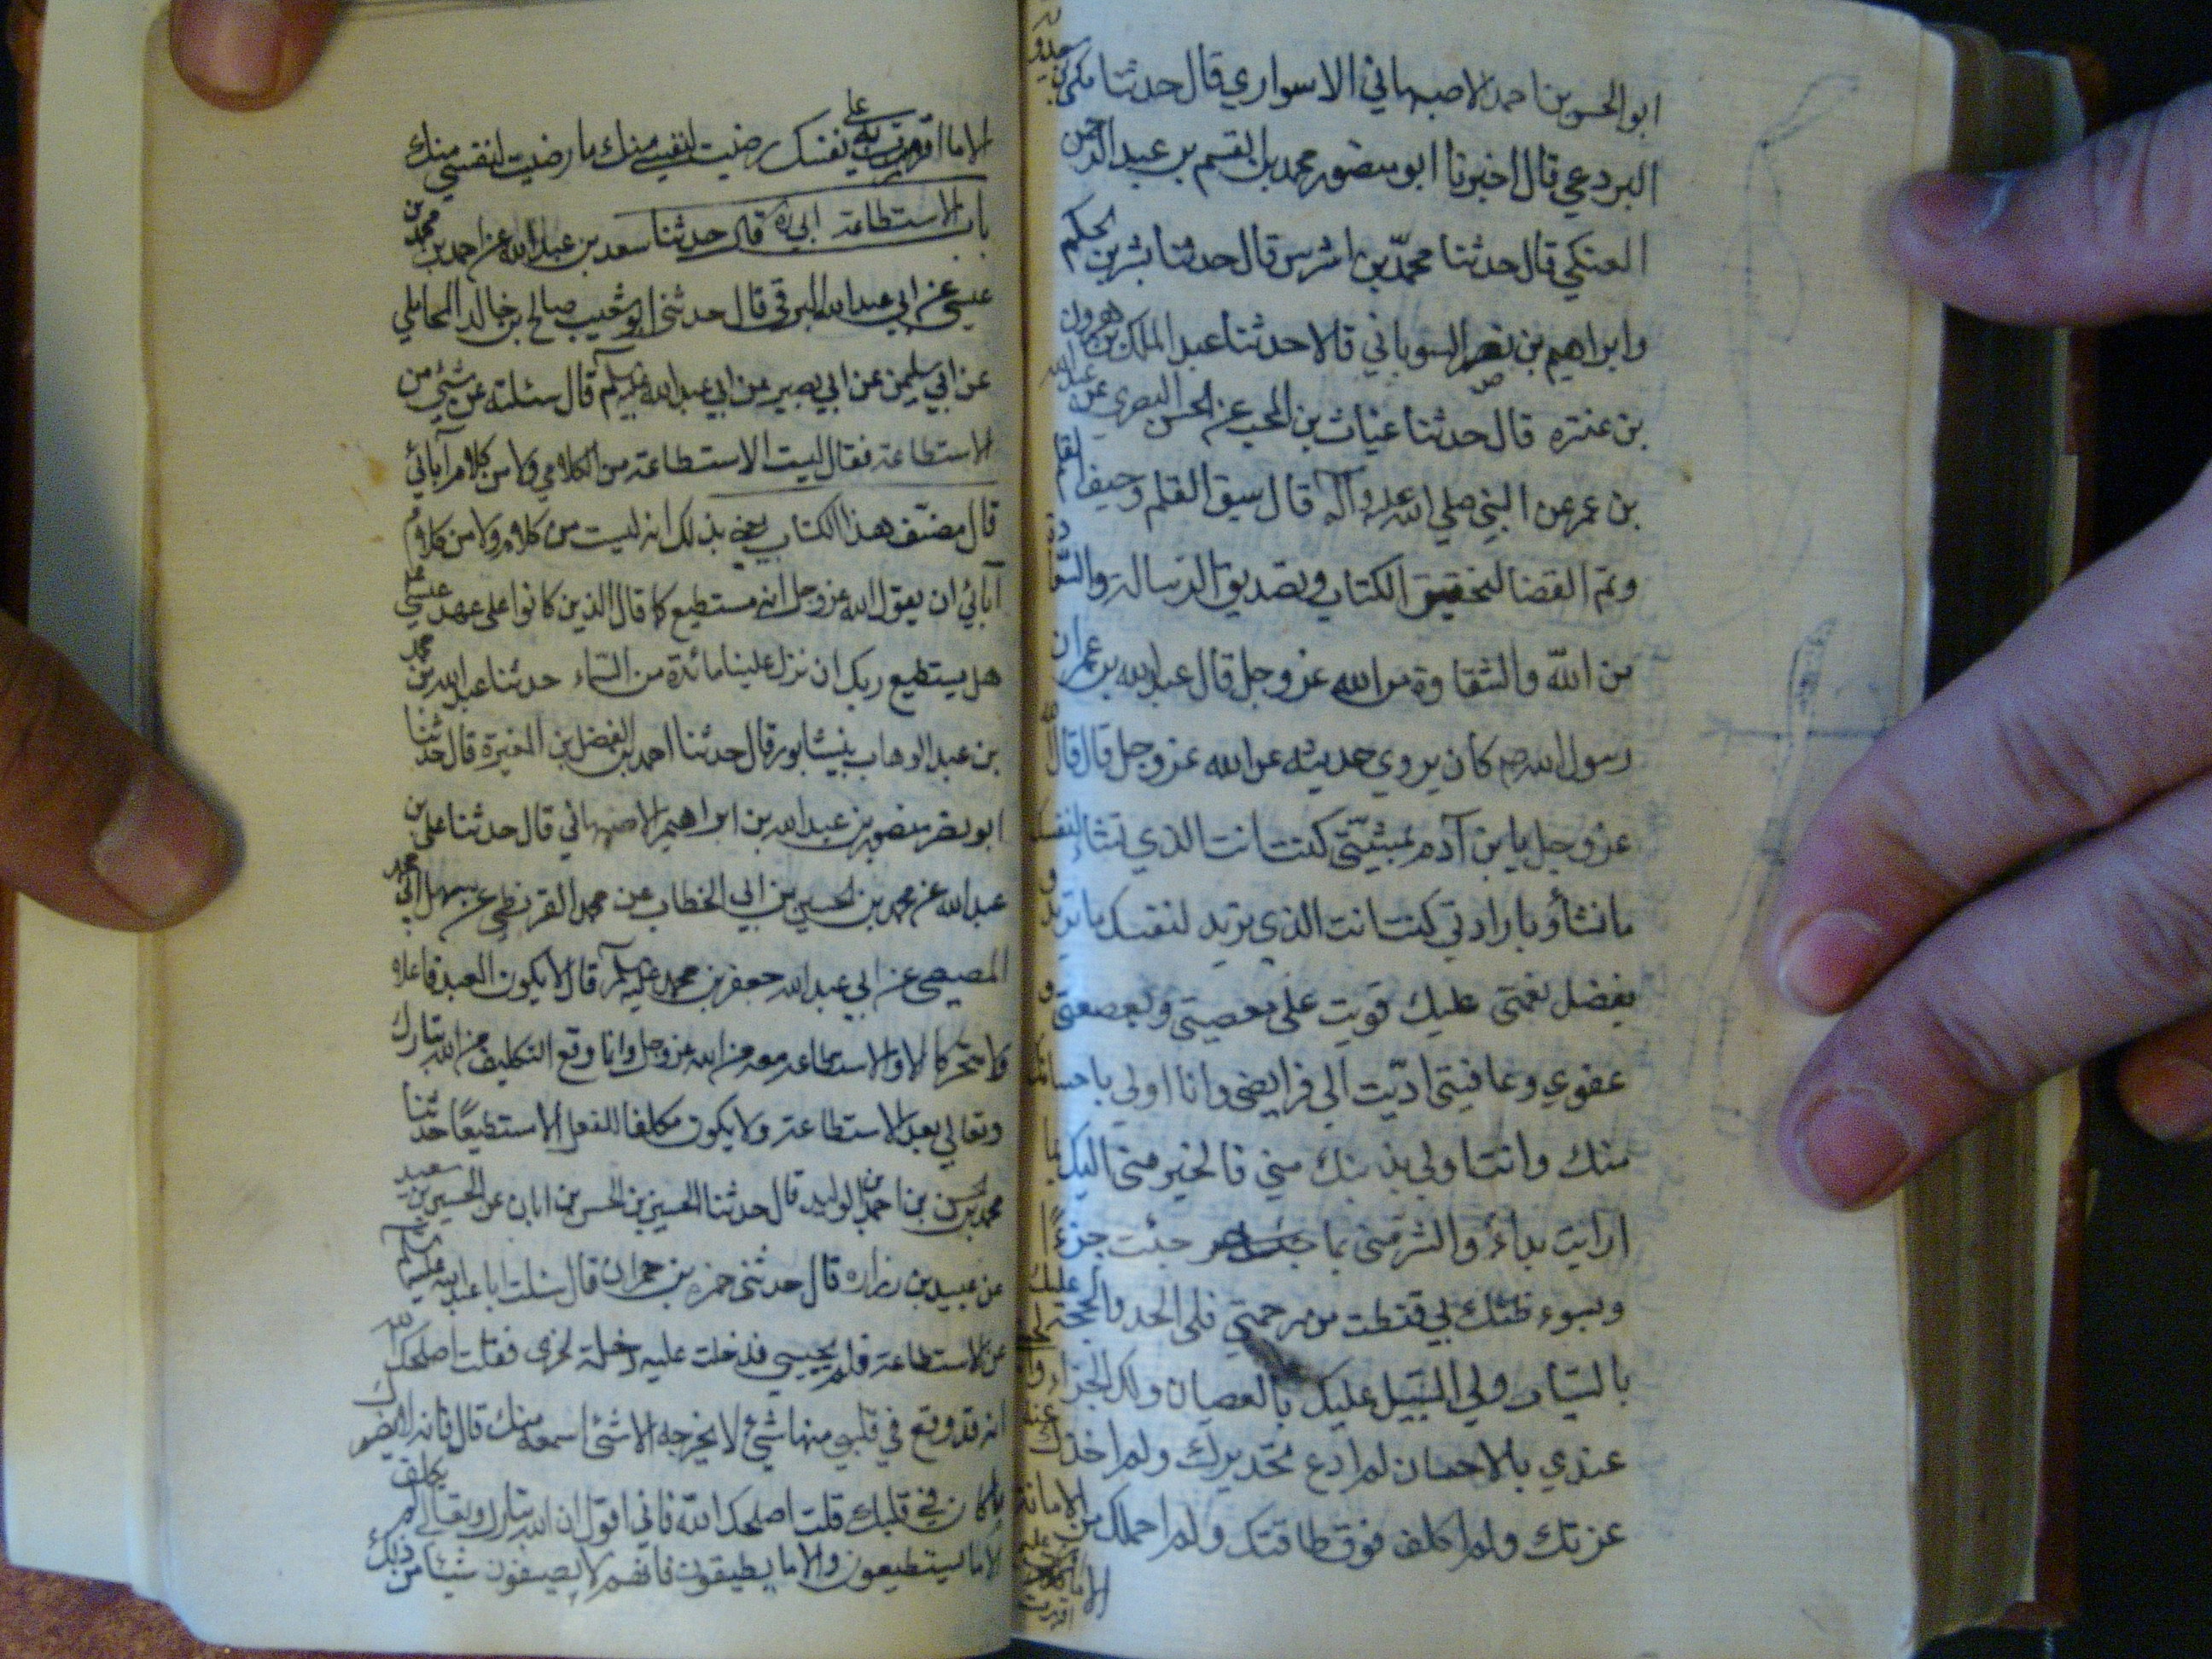 ابو الحسن بن احمد الاصبهاني الاسواري قال حدثنا مكي بن سعدويه
البردعي قال اخبرنا ابو منصور محمد بن القسم بن عبد الرحمن
العتكي قال حدثنا محمد بن اشرس قال حدثنا بشر بن الحكم
وابراهيم بن نصر السورياني قالا حدثنا عبد الملك بن هرون
بن عنتره قال حدثنا غياث بن المجيب عن الحسن البصري عن عبد الله
بن عمر عن النبي صلي الله عليه وآله قال سبق القلم وجف القلم
وتم القضا لتحقيق الكتاب وتصديق الرسالة والسعادة
من الله والشقاوة من الله عز وجل قال عبد الله بن عمر ان
رسول الله ص كان يروي حديثه عن الله عز وجل قال قال الله
عز وجل يا بن آدم بمشيتي كنت انت الذي تشا لنفسك
ما تشأ وبارادتي كنت انت الذي تريد لنفسك ما تريد و
بفضل نعمتي عليك قويت علي معصيتي وبعصمتي و
عفوي وعافيتي اديت الي فرايضي وانا اولي باحسانك
منك وانت اولي بذنبك مني فالخير مني اليك بما
اوليت بداء والشر مني بما جنيت جزاءً
وبسوء ظنك بي قنطت من رحمتي فلي الحمد والحجة عليك
بالبيان ولي السبيل عليك بالعصيان ولك الجزاء و
عندي بالاحسان لم ادع تحذيرك ولم اخذك عند
عزتك ولم اكلف فوق طاقتك ولم احملك من الامانة
الا ما
الا ما اقررت به علي نفسك رضيت لنفسي منك ما رضيت لنفسي منك
باب الاستطاعة ابي ره قال حدثنا سعد بن عبد الله عن احمد بن محمد بن
عيسى عن ابي عبد الله البرقي قال حدثني ابو شعيب صالح بن خالد المحاملي
عن ابي سليمن عن ابي بصير عن ابي عبد الله عليه السلم قال سئلته عن شئ من
الاستطاعة فقال ليست الاستطاعة من كلامي ولا من كلام آبائي
قال مصنف هذا الكتاب يعني بذلك انه ليست من كلامي ولا من كلام
آبائي ان يقول الله عز وجل انه مستطيع كما قال الذين كانوا على عهد عيسى
هل يستطيع ربك ان ننزل علينا مائدة من السماء حدثنا عبد الله بن محمد
بن عبد الوهاب بنيشابور قال حدثنا احمد بن الفضل بن المغيرة قال حدثنا
ابو نصر منصور بن عبد الله بن ابراهيم الاصفهاني قال حدثنا علي بن
عبد الله عن محمد بن الحسين بن ابي الخطاب عن محمد القرنطي عن سهل ابي محمد
المصيصي عن ابي عبد الله جعفر بن محمد عليه السلم قال لا يكون العبد فاعلا
ولا متحركا الا والاستطاعة معه من الله عز وجل وانما وقع التكليف من الله تبارك
وتعالي بعد الاستطاعة ولا يكون مكلفا للفعل الا مستطيعًا حدثنا
محمد بن الحسن بن احمد بن الوليد قال حدثنا الحسين بن الحسن بن ابان عن الحسين بن سعيد
عن عبيد بن زراره قال حدثني حمزه بن حمران قال سئلت ابا عبد الله عليه السلم
عن الاستطاعة فلم يجبني فدخلت عليه دخلة اخري فقلت اصلحك الله
انه قد وقع في قلبي منها شئ لا يخرجه الا شئ اسمعه منك قال فانه لا يضرك
ما كان في قلبك قلت اصلحك الله فاني اقول ان الله تبارك وتعالي لم يكلف
الا ما يستطيعون والا ما يطيقون فانهم لا يصنعون شيئا من ذلك